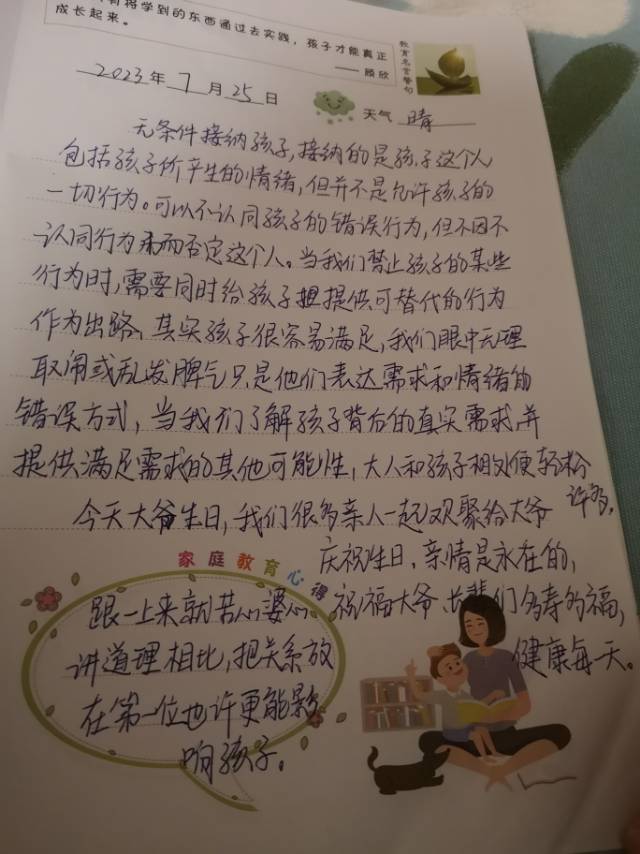 有将学到的东西通过去实践，孩子才能真正
成长起来。
——顾欣
教育名言警句
2023年7月25日
天气 晴
无条件接纳孩子，接纳的是孩子这个人
包括孩子所产生的情绪，但并不是允许孩子的
一切行为。可以不认同孩子的错误行为，但不因不
认同行为而否定这个人。当我们禁止孩子的某些
行为时，需要同时给孩子提供可替代的行为
作为出路、其实孩子很容易满足，我们眼中无理
取闹或乱发脾气只是他们表达需求和情绪的
错误方式，当我们了解孩子背后的真实需求，并
提供满足需求的其他可能性，大人和孩子相处便轻松
许多。
今天大爷生日，我们很多亲人一起欢聚给大爷
庆祝生日，亲情是永在的，
祝福大爷、长辈们多寿多福，
健康每一天。
家庭教育心得
跟一上来就苦心婆心
讲道理相比，把关系放
在第一位也许更能影
响孩子。